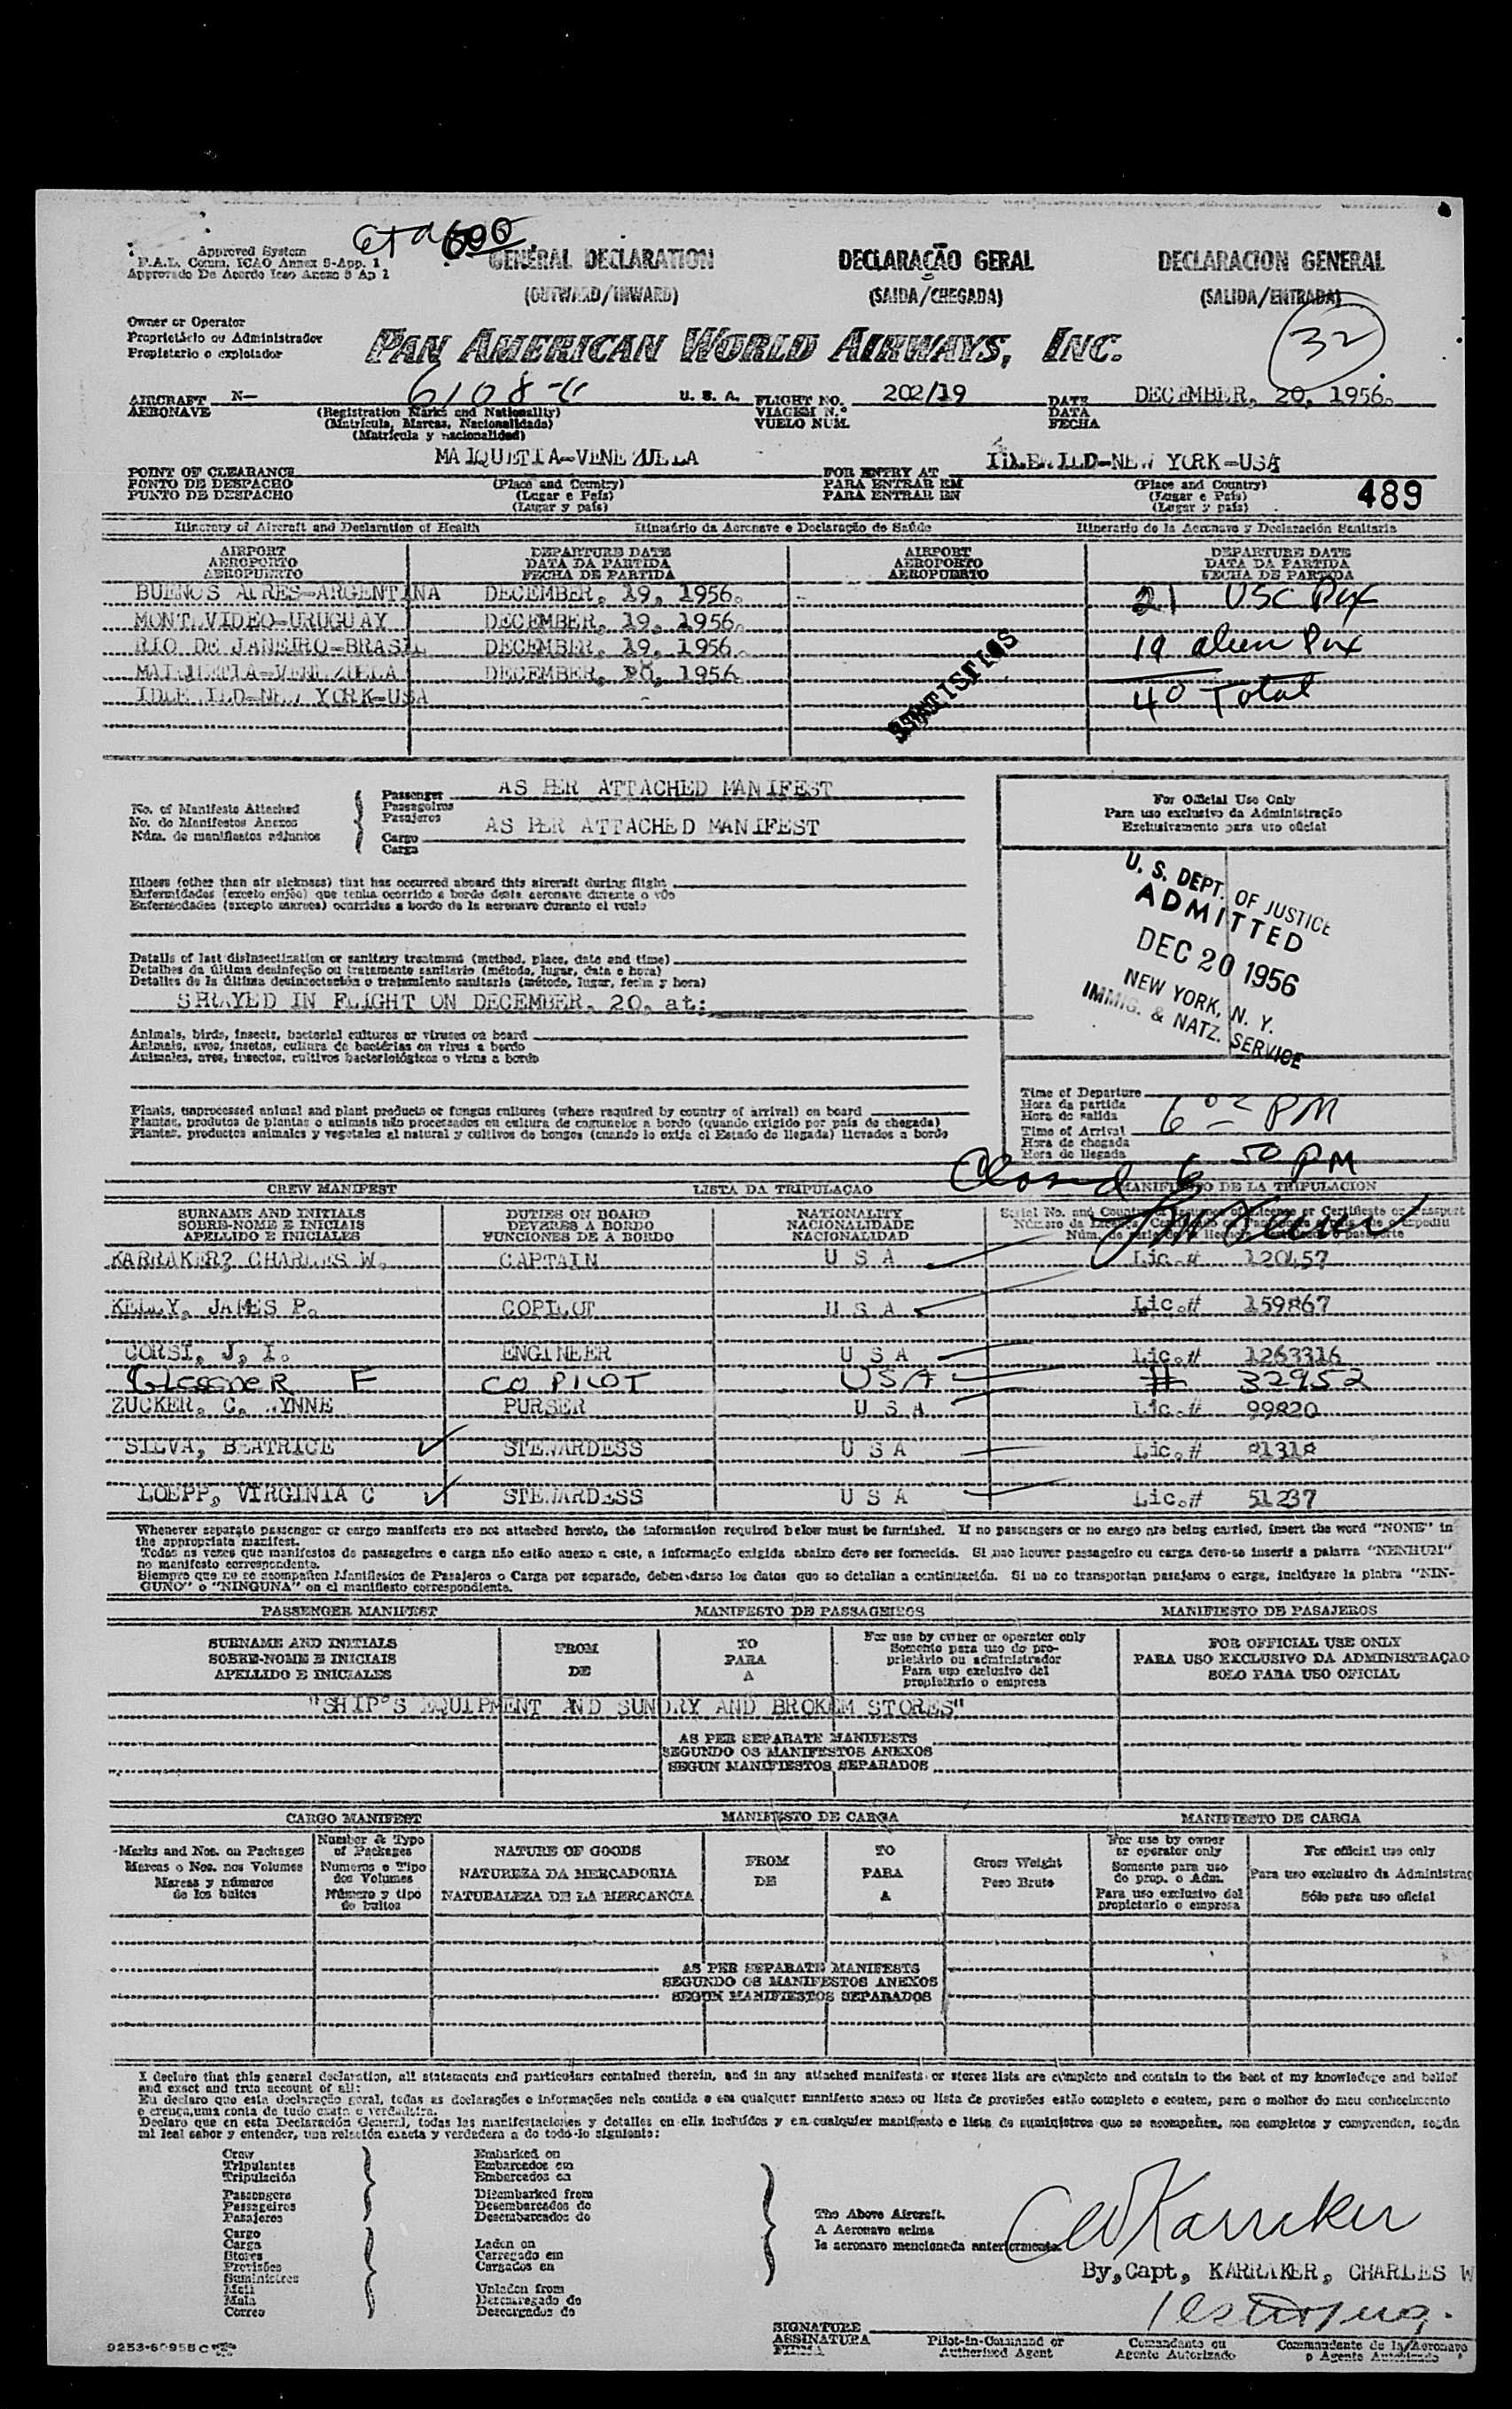 eta 600
Approved System
P.A.L. Comm. ICAO Annex 9-App. 1
Approvado De Acordo Icao Anexo 9 Ap 1
GENERAL DECLARATION DECLARAÇÃO GERAL DECLARACION GENERAL
(OUTWARD/INWARD) (SAIDA/CHEGADA) (SALIDA/ENTRADA)
32
Owner or Operator
Proprietário ou Administrador
Propietario o explotador
PAN AMERICAN WORLD AIRWAYS, INC.
AIRCRAFT N- 6108-C U. S. A. FLIGHT NO. 202/19 DATE DECEMBER, 20, 1956.
AERONAVE (Registration Marks and Nationality) VIAGEM N.º DATA
(Matrícula, Marcas, Nacionalidade) VUELO NUM. FECHA
(Matrícula y nacionalidad)
POINT OF CLEARANCE MAIQUETIA-VENEZUELA FOR ENTRY AT IDLEWILD-NEW YORK-USA
PONTO DE DESPACHO (Place and Country) PARA ENTRAR EM (Place and Country)
PUNTO DE DESPACHO (Lugar e País) PARA ENTRAR EN (Lugar e País)
(Lugar y país) (Lugar y país)
489
Itinerary of Aircraft and Declaration of Health Itinerário da Aeronave e Declaração de Saúde Itinerario de la Aeronave y Declaración Sanitaria
AIRPORT DEPARTURE DATE AIRPORT DEPARTURE DATE
AEROPORTO DATA DA PARTIDA AEROPORTO DATA DA PARTIDA
AEROPUERTO FECHA DE PARTIDA AEROPUERTO FECHA DE PARTIDA
BUENOS AIRES-ARGENTINA DECEMBER, 19, 1956. 21 USC Pax
MONT.VIDEO-URUGUAY DECEMBER, 19, 1956.
RIO DE JANEIRO-BRASIL DECEMBER, 19, 1956. 19 alien Pax
MAIQUETIA-VENEZUELA DECEMBER, 20, 1956
IDLEWILD-NEW YORK-USA - 40 Total
STATISTICS
No. of Manifests Attached
No. de Manifestos Anexos
Núm. de manifiestos adjuntos
Passenger AS PER ATTACHED MANIFEST
Passageiros
Pasajeros
Cargo AS PER ATTACHED MANIFEST
Carga
For Official Use Only
Para uso exclusivo da Administração
Exclusivamento para uso oficial
Illness (other than air sickness) that has occurred aboard this aircraft during flight
Enfermidades (exceto enjôo) que tenha ocorrido a bordo desta aeronave durante o vôo
Enfermedades (excepto mareos) ocurridas a bordo de la aeronave durante el vuelo
U. S. DEPT. OF JUSTICE
ADMITTED
DEC 20 1956
NEW YORK, N. Y.
IMMIG. & NATZ. SERVICE
Details of last disinsectization or sanitary treatment (method, place, date and time)
Detalhes da última desinfeção ou tratamento sanitario (método, lugar, data e hora)
Detalles de la última desinsectación o tratamiento sanitario (método, lugar, fecha y hora)
SPRAYED IN FLIGHT ON DECEMBER, 20, at:
Animals, birds, insects, bacterial cultures or viruses on board
Animais, aves, insetos, cultura de bactérias ou virus a bordo
Animales, aves, insectos, cultivos bacteriológicos o virus a bordo
Plants, unprocessed animal and plant products or fungus cultures (where required by country of arrival) on board
Plantas, produtos de plantas o animais não processados ou cultura de cogumelos a bordo (quando exigido por país de chegada)
Plantas, productos animales y vegetales al natural y cultivos de hongos (cuando lo exija el Estado de llegada) llevados a bordo
Time of Departure
Hora da partida
Hora de salida
Time of Arrival 6 02 PM
Hora de chegada
Hora de llegada
Closed 6 50 PM
CREW MANIFEST LISTA DA TRIPULAÇAO MANIFIESTO DE LA TRIPULACION
SURNAME AND INITIALS DUTIES ON BOARD NATIONALITY Serial No. and Country of Issuance of License or Certificate or Passport
SOBRE-NOME E INICIAIS DEVERES A BORDO NACIONALIDADE
APELLIDO E INICIALES FUNCIONES DE A BORDO NACIONALIDAD
KARRAKER? CHARLES W. CAPTAIN U S A Lic.# 120457
KELLY, JAMES P. COPILOT U S A Lic.# 159867
CORSI, J, I. ENGINEER U S A Lic.# 1263316
Glessner F COPILOT USA # 32952
ZUCKER, C. WYNNE PURSER U S A Lic.# 99820
SILVA, BEATRICE STEWARDESS U S A Lic.# 81318
LOEPP, VIRGINIA C STEWARDESS U S A Lic.# 51237
Whenever separate passenger or cargo manifests are not attached hereto, the information required below must be furnished. If no passengers or no cargo are being carried, insert the word "NONE" in
the appropriate manifest.
Todas as vezes que manifestos de passageiros e carga não estão anexo a este, a informação exigida abaixo deve ser fornecida. Si nao houver passageiro ou carga deve-se inserir a palavra "NENHUM"
no manifesto correspondente.
Siempre que no se acompañen Manifiestos de Pasajeros o Carga por separado, deben darse los datos que se detallan a continuación. Si no se transportan pasajeros o carga, inclúyase la plabra "NIN-
GUNO" o "NINGUNA" en el manifiesto correspondiente.
PASSENGER MANIFEST MANIFESTO DE PASSAGEIROS MANIFIESTO DE PASAJEROS
SURNAME AND INITIALS FROM TO For use by owner or operator only FOR OFFICIAL USE ONLY
SOBRE-NOME E INICIAIS DE PARA Somente para uso do pro- PARA USO EXCLUSIVO DA ADMINISTRAÇAO
APELLIDO E INICIALES A prietário ou administrador SOLO PARA USO OFICIAL
Para uso exclusivo del
propietario o empresa
"SHIP'S EQUIPMENT AND SUNDRY AND BROKEM STORES"
AS PER SEPARATE MANIFESTS
SEGUNDO OS MANIFESTOS ANEXOS
SEGUN MANIFIESTOS SEPARADOS
CARGO MANIFEST MANIFESTO DE CARGA MANIFIESTO DE CARGA
Marks and Nos. on Packages Number & Type of Packages NATURE OF GOODS FROM TO Gross Weight For use by owner or operator only For official use only
Marcas o Nos. nos Volumes Numeros e Tipo dos Volumes NATUREZA DA MERCADORIA DE PARA Peso Bruto Somente para uso do prop. o Adm. Para uso exclusivo da Administraç
Marcas y números de los bultos Número y tipo de bultos NATURALEZA DE LA MERCANCIA A Para uso exclusivo del propietario o empresa Sólo para uso oficial
AS PER SEPARATE MANIFESTS
SEGUNDO OS MANIFESTOS ANEXOS
SEGUN MANIFIESTOS SEPARADOS
I declare that this general declaration, all statements and particulars contained therein, and in any attached manifests or stores lists are complete and contain to the best of my knowledege and belief
and exact and true account of all:
Eu declaro que esta declaração geral, todas as declarações e informações nela contida e em qualquer manifesto anexo ou lista de provisões estão completo e contem, para o melhor do meu conhecimento
e crença, uma conta de tudo exata e verdadeira.
Declaro que en esta Declaración General, todas las manifestaciones y detalles en ella incluídos y en cualquier manifiesto o lista de suministros que se acompañen, son completos y comprenden, según
mi leal sabor y entender, una relación exacta y verdadera a de todo-lo siguiente:
Crew Embarked on
Tripulantes Embarcados em
Tripulación Embarcados en
Passengers Disembarked from
Passageiros Desembarcados do
Pasajeros Desembarcados de
Cargo
Carga Laden on
Stores Carregado em
Provisões Cargados en
Suministros
Mail Unladen from
Mala Descarregado do
Correo Descargados de
The Above Aircraft.
A Aeronave acima
la aeronave mencionada anteriormente.
CW Karraker
By,Capt, KARRAKER, CHARLES W
SIGNATURE
ASSINATURA Pilot-in-Command or Comandante ou Commandante de la Aeronave
FIRMA Authorized Agent Agente Autorizado o Agente Autorizado